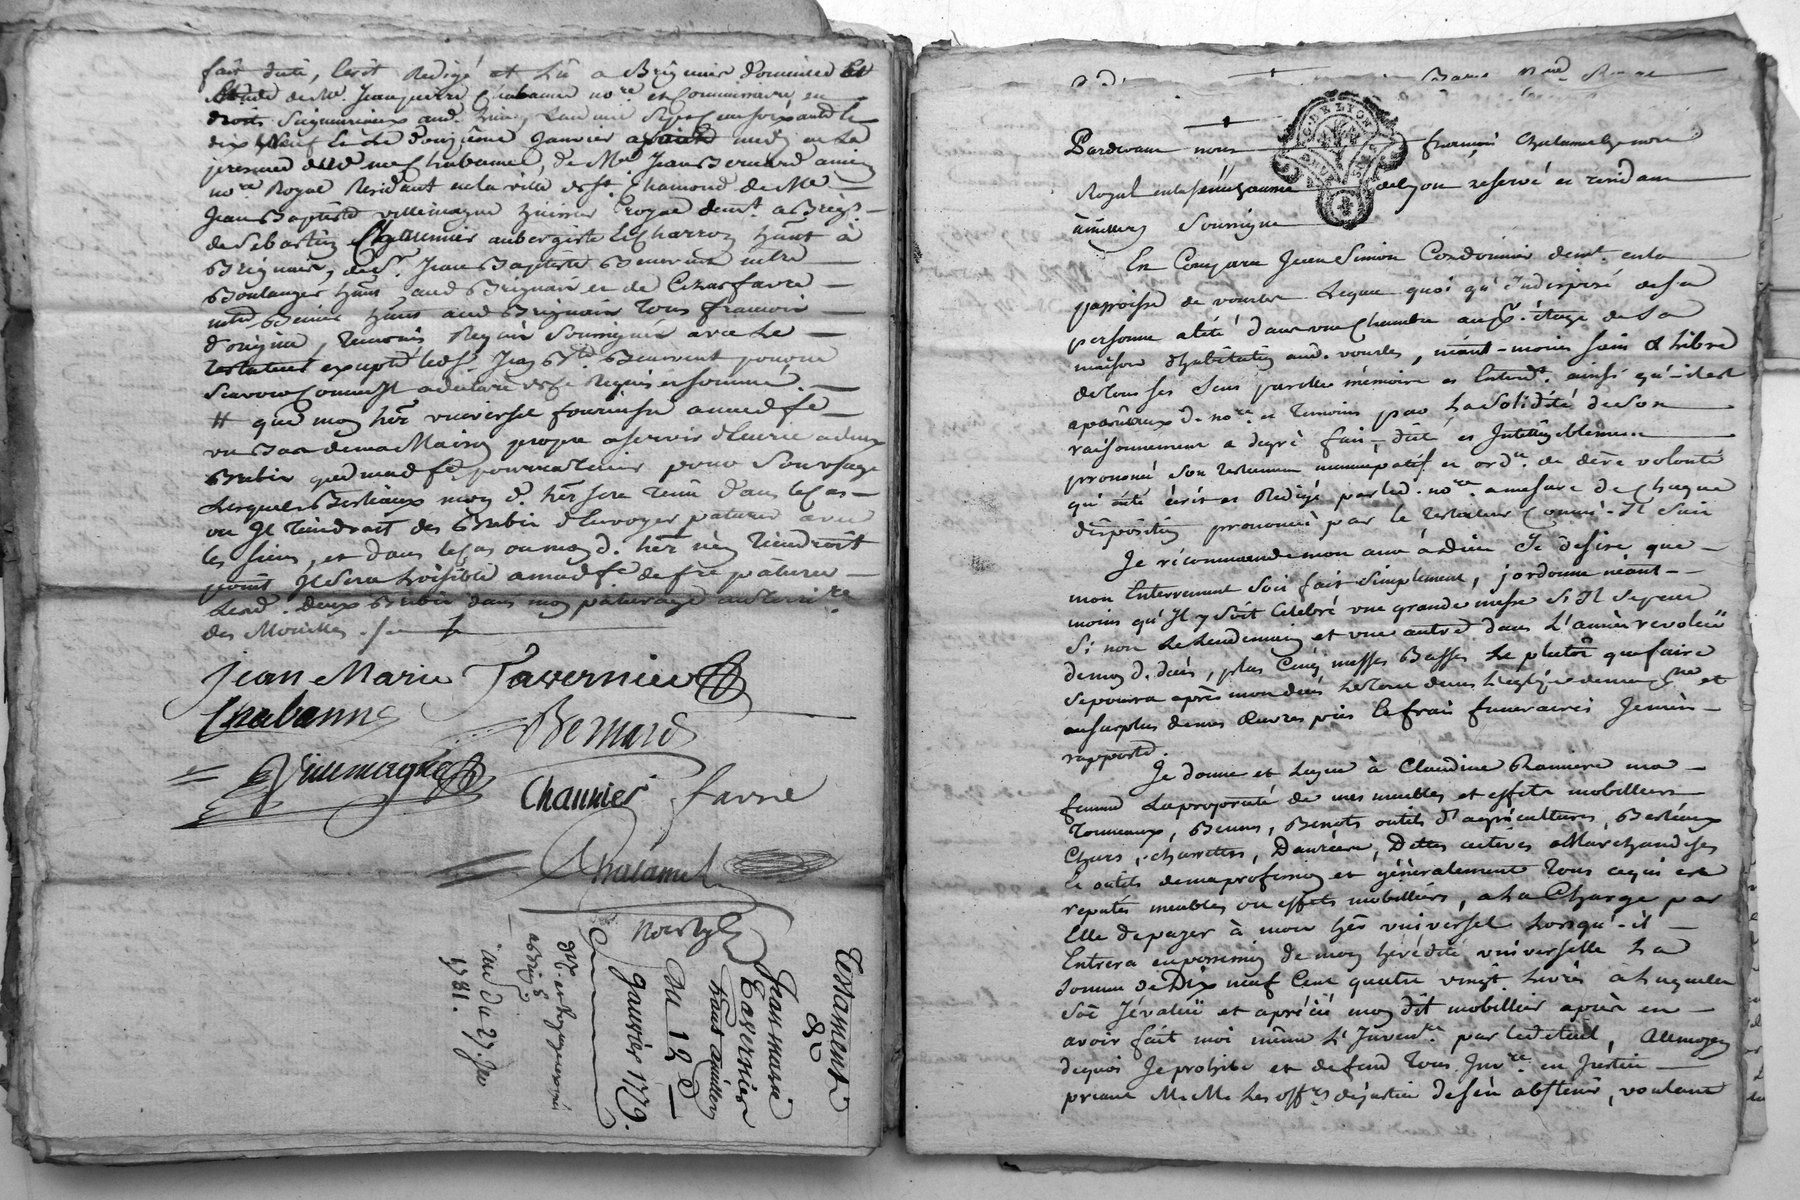 fait dicté, lecû Redigé et Lû a Brignais domicile et
Etude de Me. Jean pierre Chabanne nore. et Commissaire en
droits Seigneuriaux aud. lieu, Lan mil Sept Cens soixante
dix Neuf Le douzième Janvier avant midy en La
presence dud. me Chabanne, de Me Jean Bernard
nore. Royal Residant en la ville de St. Chamond de Me
Jean Baptiste villemagne huissier Royal demt. a Brigs.
de Sebastien Chaumier aubergiste et Charron habt à
Brignais, de Sr. Jean Baptiste Benevent mtre
Boulanger habt aud Brignais et de Cezar favre
habt aud Brignais Tous francois
d'origine, Temoins Requis Soussignés avec Le
testateur excepté led Sr. Jean Bte Benevent pour ne
Scavoir ecrire a declaré de ce Requis et sommé.
# que mon hér. universel fournisse a mad fe
un Bas de ma Maison propre a servir d'écurie a deux
Brebis que mad fe pourra tenir pour Son usage
Lesquels Bestiaux mon d. hér sera tenû dans le Cas
ou Il tiendroit des Brebis d'Envoyer paturer avec
les siens, et dans le Cas ou mon d. hér n'en tiendroit
point Il Sera Loisible a mad fe de fre paturer
Lesd. deux Brebis dans mon paturage au Territre
des Mouilles
Jean Marie Tavernier
Chabanne
Bernard
Villemagne
Chaumier favre
Chalamel
nore Ryl
Testament
de
Jean marie
Tavernier
habt a millery
Du 12 d
janvier 1779.
ins. 27. Jer
1781.
Pardevant nous françois Chalamel nore
Royal en la sénéchaussée de Lyon reservé et résidant
à millery Soussigné
En Compara Jean Simon Cordonnier demt. en la
parroisse de vourles Lequel quoi qu'Indisposé de sa
personne alité dans une Chambre au pr. étage de La
maison d'habitation aud. vourles, néant-moins sain & Libre
de tous ses Sens parolle mémoire et Entendt. ainsi qu'il est
apparû aux d. nore. et Temoins par La Solidité de Son
raisonnement a degré fait, dité et Intelligiblement
prononcé Son testament nuncupatif et ordre. de dere volonté
qui a été écrit et Redigé par led. nore. a mesure de Chaque
disposition prononcée par le testateur Comme Il Suit
Je récommande mon ame à Dieu Je desire que
mon Enterrement Soit fait Simplement, j'ordonne néant-
moins qu'Il y Soit Célébré une grande messe Si Il Se peut
Si non Le Lendemain et une autre dans L'année revolüe
de mon d. décès, plus Cinq messes Basses Le plutôt que faire
Se pourra après mon décès Le Tout dans L'eglise de
au surplus de mes Œuvres pies et frais funeraires Je m'en
rapporte.
Je donne et Legue à Claudine Ranvier ma
femme La propriété de mes meubles et effets mobilliers
Tonneaux, Bennes, Benots outils d'agricultures, Bestiaux
Chars, charettes, Danrées, Dettes actives Marchandises
et outils de ma profession et généralement Tous ce qui est
reputés meubles ou effets mobilliers, a La Charge par
Elle de payer à mon hér universel Lorsqu'il
Entrera en possession de mon hérédité universelle La
Somme de Dix neuf Cent quatre vingt Livres a Laquelle
Soe J'évalüe et apréciè mon dit mobillier après en
avoir fait moi même L'Inventre. par Led détail, Au moyen
de quoi Je prohibe et defend Tous Invre. en Justice
priant M. M. Les offrs de justice de s'en abstenir, voulant